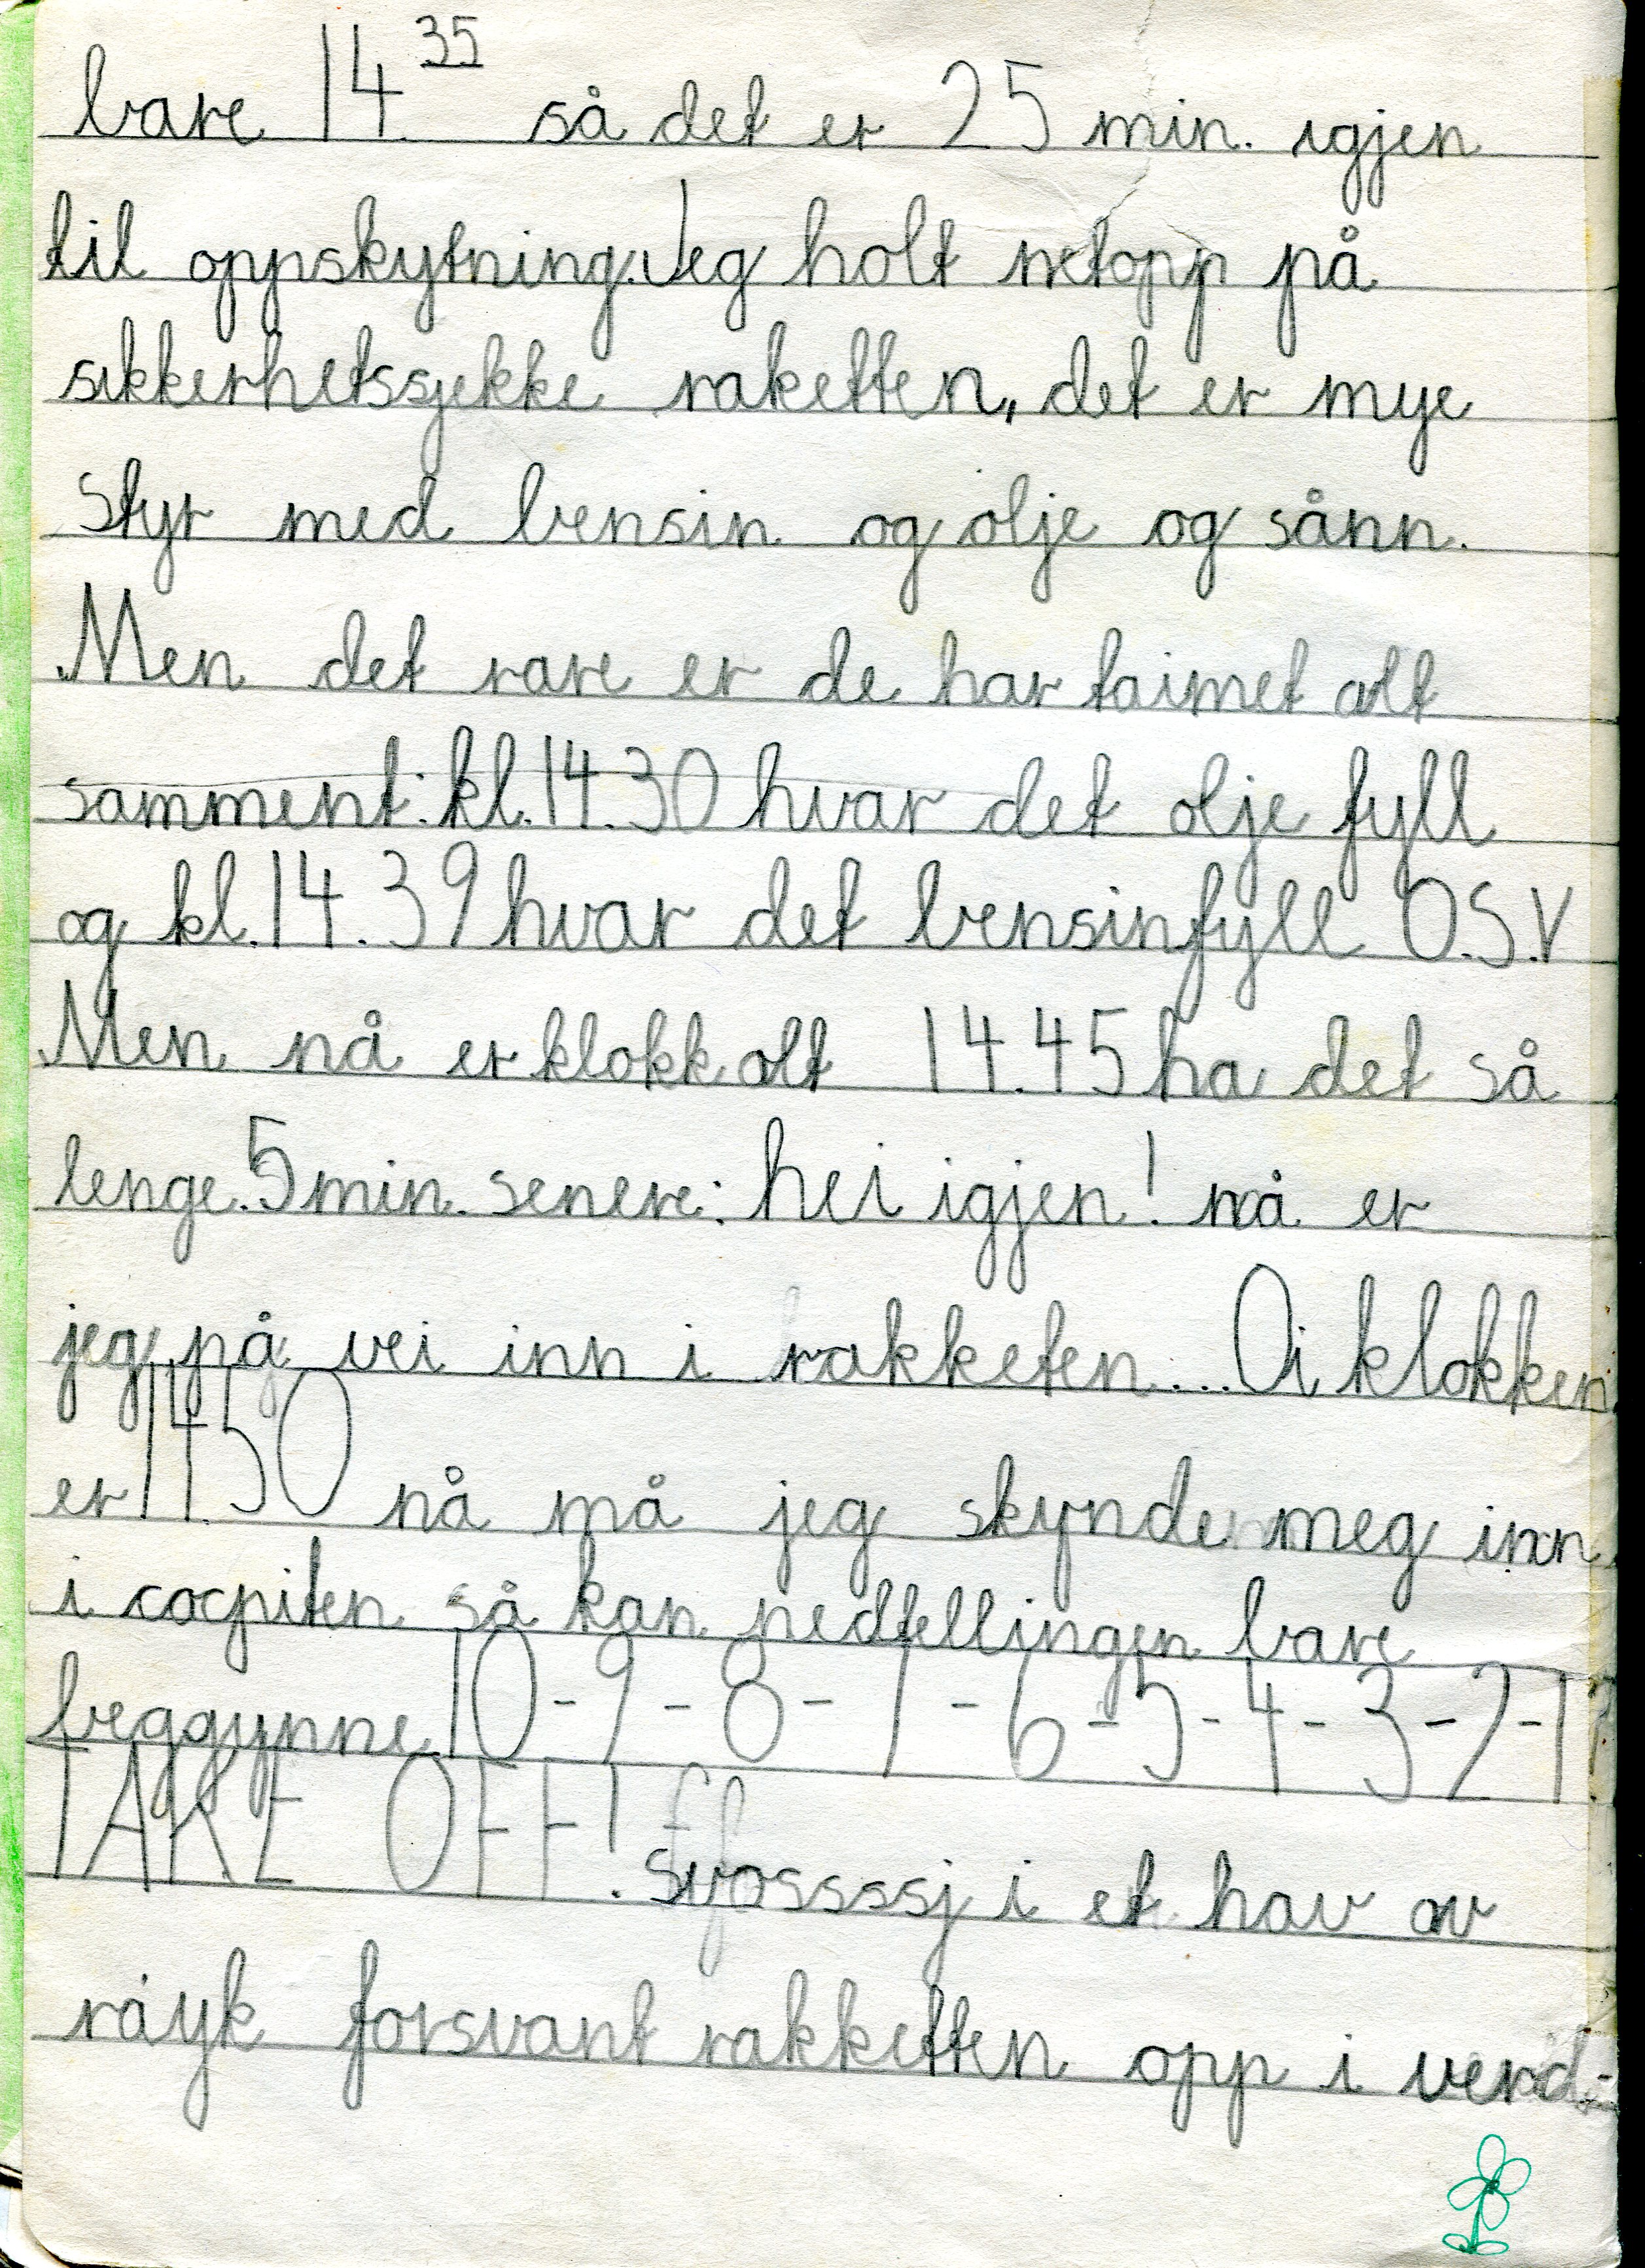 bare 14 35 så det er 25 min. igjen
til oppskytning. Jeg holt netopp på
sikkerhetssjekke raketten, det er mye
styr med bensin og olje og sånn.
Men det rare er de har taimet alt
samment: kl. 14.30 hvar det olje fyll
og kl. 14.39 hvar det bensinfyll O.S.V
Men nå er klokk alt 14.45 ha det så
lenge. 5 min. senere: hei igjen! nå er
jeg på vei inn i rakketen... Oi klokken
er 14.50 nå må jeg skynde meg inn
i cocpiten så kan nedtellingen bare
beggynne 10-9-8-7-6-5-4-3-2-1?
TAKE OFF! svosssssj i et hav av
råyk forsvant rakketten opp i verd-